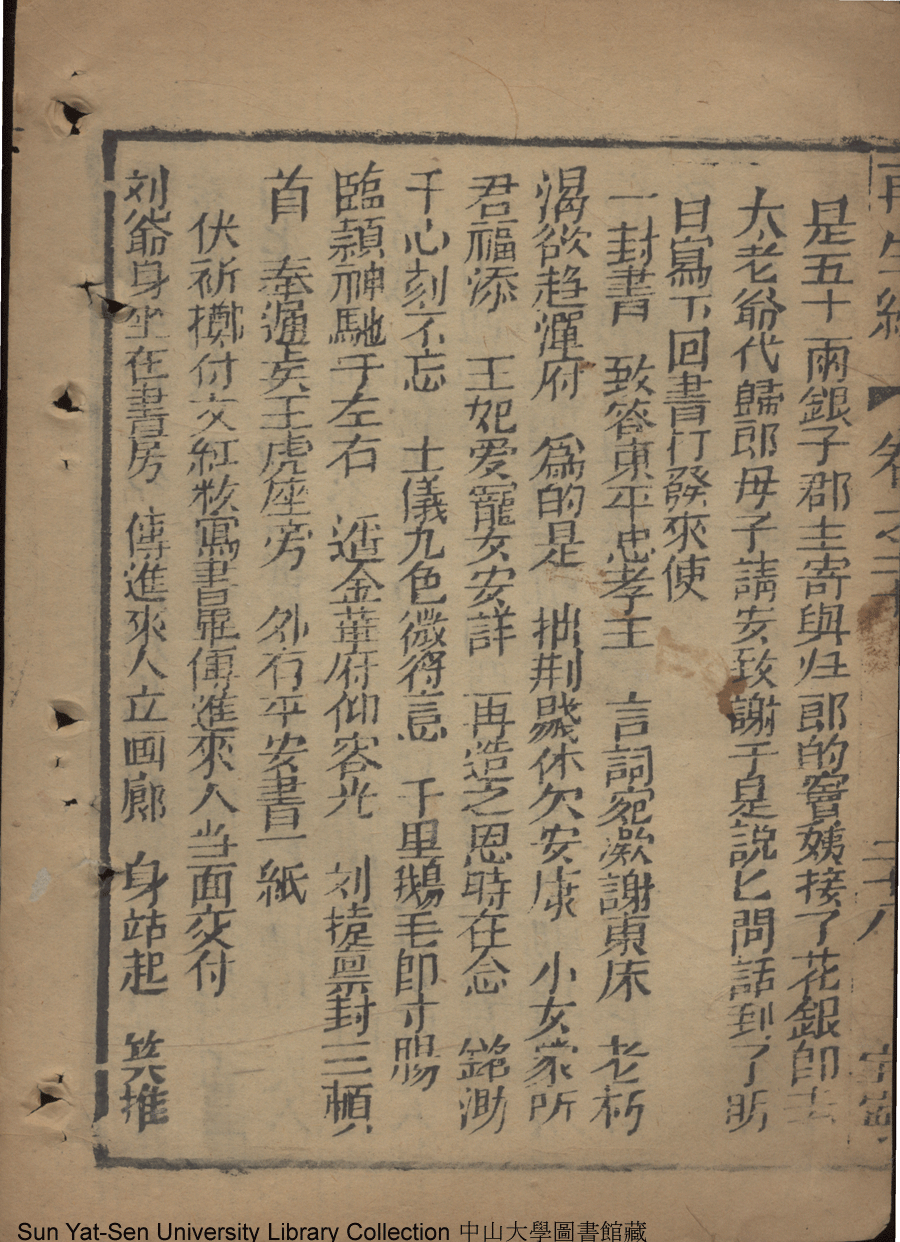 再生緣 卷之二十 二十八
是五十兩銀子郡主寄與归郎的竇姨接了花銀即去
太老爺代歸郎母子請安致謝于是說匕問話到了明
日寫下回書打發來使
一封書 致答東平忠孝王 言詞宛歉謝東床 老朽
渴欲趋潭府 為的是 拙荆幾休欠安康 小女蒙所
君福添 王妃爱寵女安詳 再造之恩時在念 銘渤
千心刻不忘 土儀九色微得意 千里鵝毛即寸腸
臨穎神馳于左右 遥金華府仰容光 刘捷禀封三頓
首 奉逓矣王虎座旁 外有平安書一紙
伏祈擲付文紅核寫書畢傳進來人当面交付
刘爺身坐在書房 傳進來人立画廊 身站起 笑推
Sun Yat-Sen University Library Collection 中山大學圖書館藏